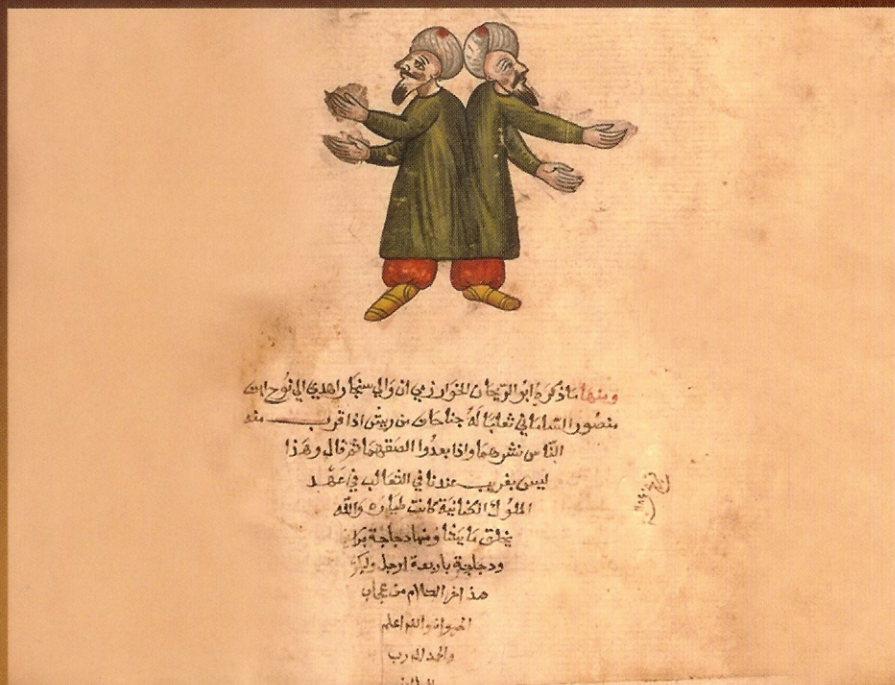 ومنها ما ذكره ابو الريحان الخوارزمي ان والي سنجار اهدي الي نوح ابن
منصور الساماني ثعلبا له جناحان من ريش اذا قرب منه
الناس نشرهما واذا بعدوا الصقهما ثم قال وهذا
ليس بغريب عندنا في الثعالب في عهد
الملوك الكيانية كانت طيارة والله
يخلق ما يشا ومنها دجاجة براسين
ودجاجة باربعة ارجل وليكن
هذا اخر الكلام من عجايب
الحيوان والله اعلم
والحمد لله رب